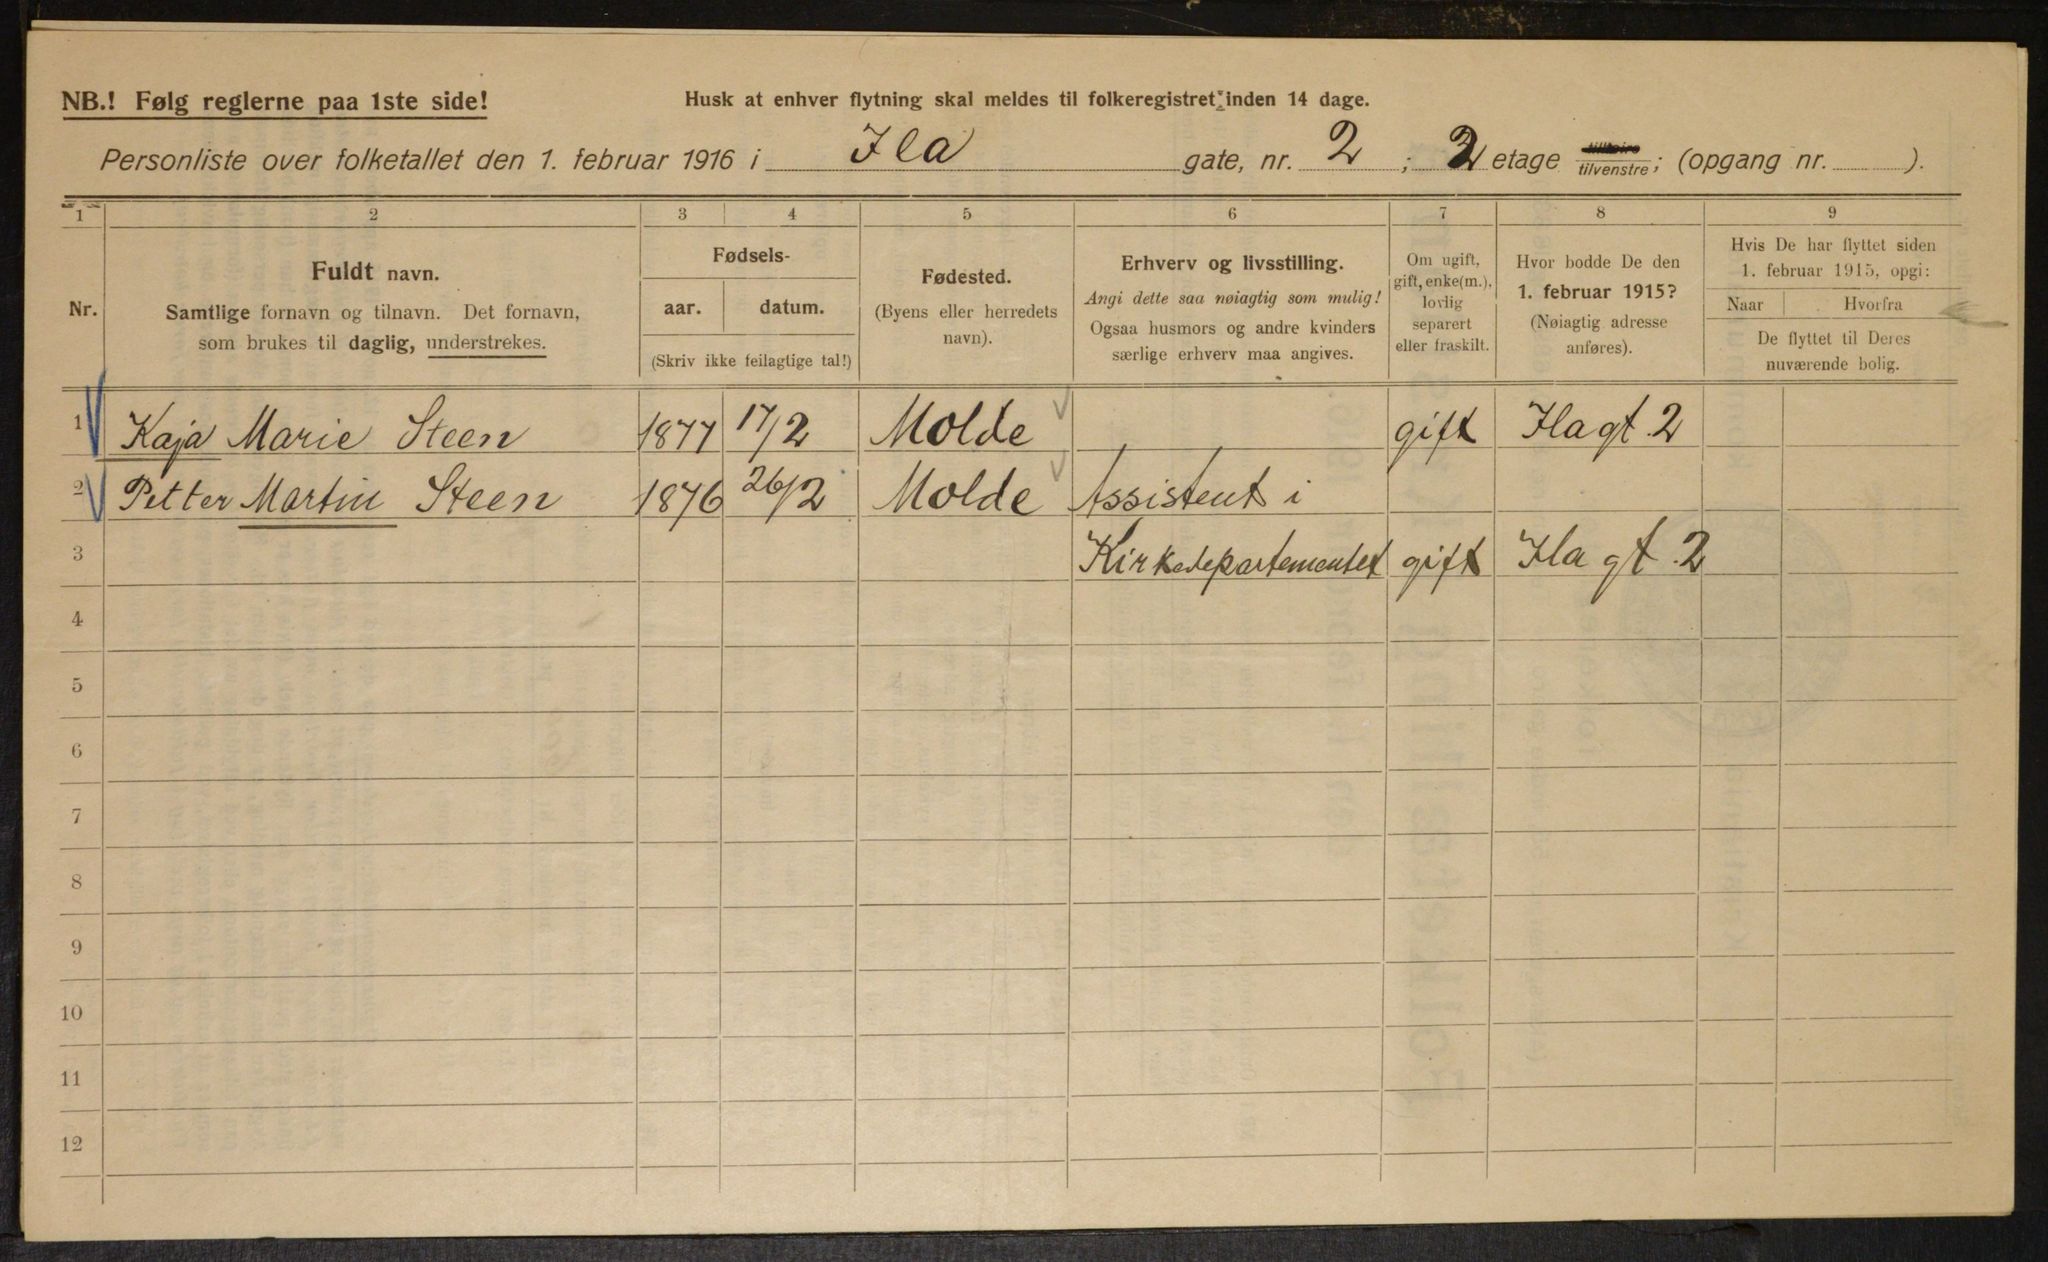 NB.! Følg reglerne paa 1ste side!
Husk at enhver flytning skal meldes til folkeregistret inden 14 dage.
Personliste over folketallet den 1. februar 1916 i Ila gate, nr. 2; 2 etage tilhøire/tilvenstre; (opgang nr. ).
1 2 3 4 5 6 7 8 9
Nr.
Fuldt navn.
Samtlige fornavn og tilnavn. Det fornavn,
som brukes til daglig, understrekes.
Fødsels-
aar. datum.
(Skriv ikke feilagtige tal!)
Fødested.
(Byens eller herredets
navn).
Erhverv og livsstilling.
Angi dette saa nøiagtig som mulig!
Ogsaa husmors og andre kvinders
særlige erhverv maa angives.
Om ugift,
gift, enke(m.),
lovlig
separert
eller fraskilt.
Hvor bodde De den
1. februar 1915?
(Nøiagtig adresse
anføres).
Hvis De har flyttet siden
1. februar 1915, opgi:
Naar Hvorfra
De flyttet til Deres
nuværende bolig.
1 Kaja Marie Steen 1877 17/2 Molde gift Ilagt. 2
2 Petter Martin Steen 1876 26/2 Molde Assistent i
3 Kirkedepartementet gift Ila gt. 2
4
5
6
7
8
9
10
11
12